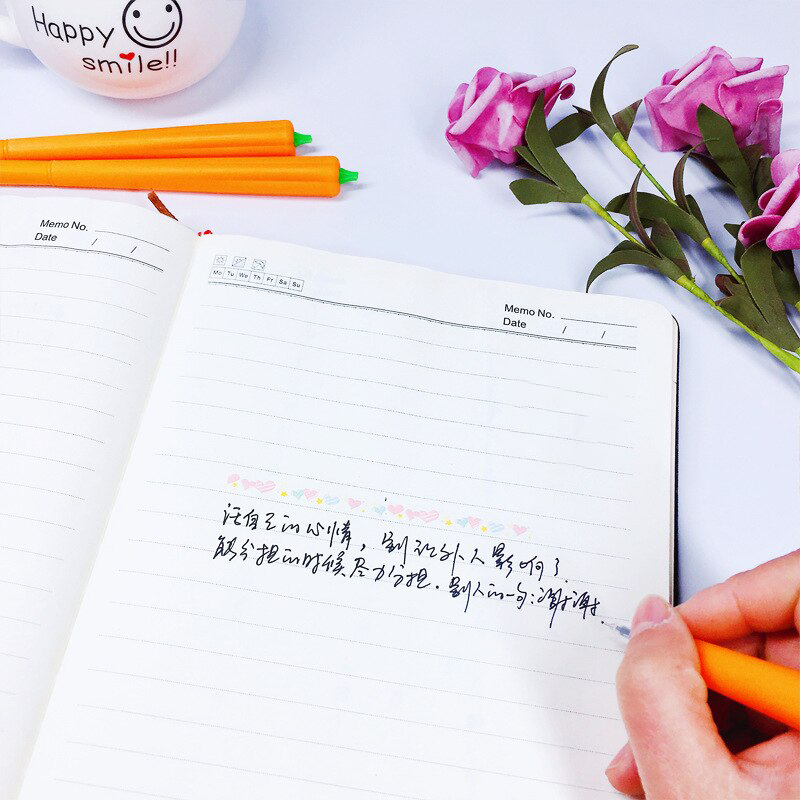 Happy
smile!!
Memo No.
Date / /
Mo Tu We Th Fr Sa Su
Memo No.
Date / /
活自己的心情，别被外人影响了.
能分担的时候尽力分担.别人的一句:谢谢.